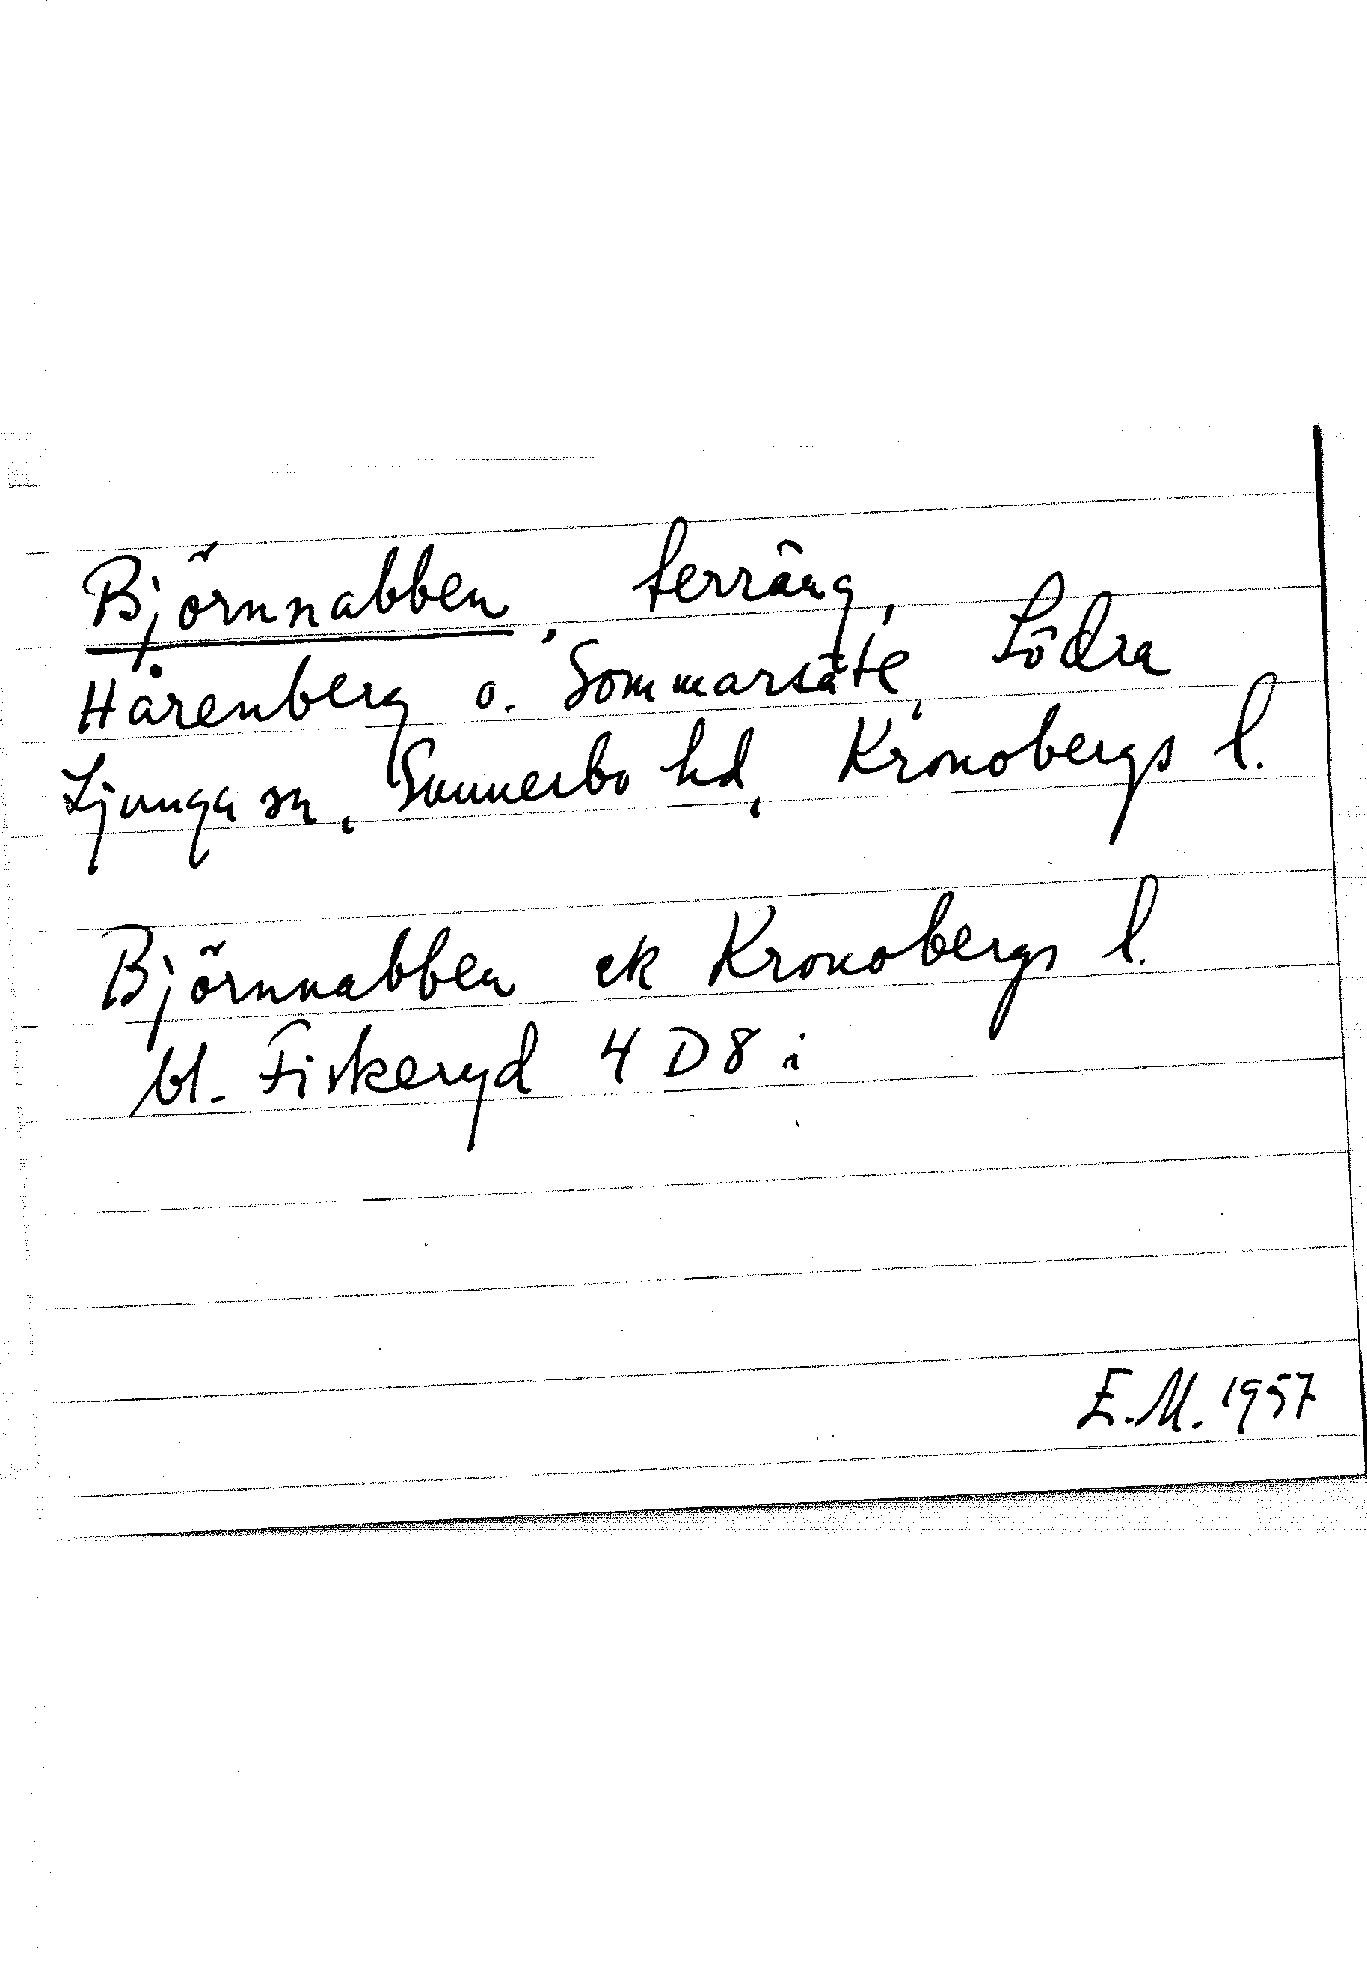 Björnnabben, terräng,
Hårenberg o. Sommarsäte, Södra
Ljunga sn, Sunnerbo hd, Kronobergs l.
Björnnabben ek Kronobergs l.
bl. Fiskeryd 4 D8 i
E.M. 1957